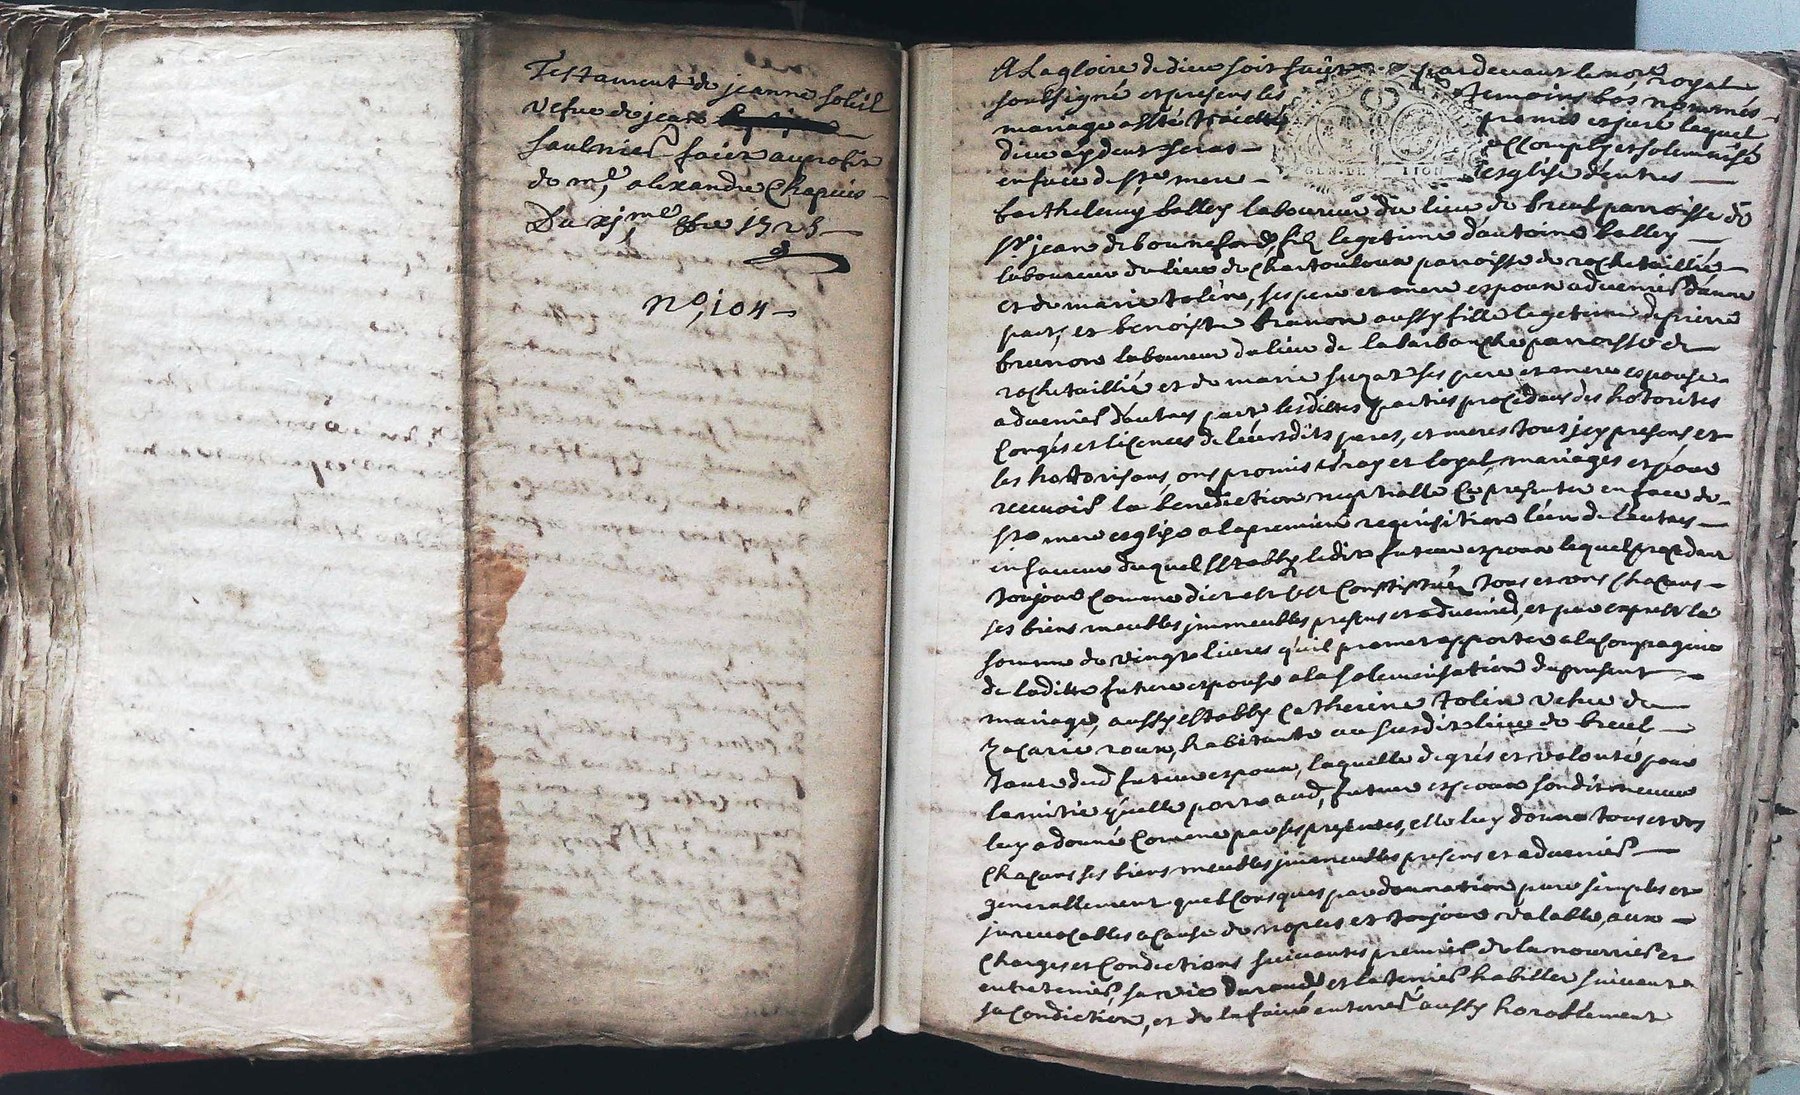 Testament de jeanne soleil
vefue de jean
saulnier faict au profit
de me alexandre Chapuis
Du xjme xbre 1525
No, 104
A La gloire de dieu soit faict pardevant le nore royal
soubsigné et presens les temoins bas nommés
mariage a esté traicté promis et juré lequel
dieu aydent seras accomply et solemnisé
en face de ste mere esglise d'entres
barthelemy balley laboureur du lieu de breul parroisse de
st jean de bonnefonds fils legetime d'antoine balley
laboureur du lieu de Chantouloux parroisse de rochetaillié
et de marie tolin, ses pere et mere espoux advenir d'une
part, et benoiste brunon aussy fille legetime de pierre
brunon laboureur du lieu de la barbanche parroisse de
rochetaillié et de marie suzat ses pere et mere espouse
advenir d'autres part lesdittes parties procedans des hotorités
Congés et licences de leursdits peres, et meres tous jcy presens et
les hottorisans, ont promis vray et loyal mariages et pour
recevoir la benediction nuptialle Ce presenter en face de
ste mere esglise a la premiere requisition l'un de l'autres
en faveur duquel Establly ledit futeur espoux lequel procedant
toujour Comme dict est s'est Constitués tous et vns chacuns
ses biens meubles jmmeubles presens et advenir, et par exprest la
somme de vingt livres qu'il promet apporter a la Compagnie
de laditte future espouse a la solemnisation du present
mariage, aussy establly Catherine tolin vefue de
Zacarie roux, habitante au susdit lieu de breul
tante dud futeur espoux, laquelle de grés et volonté pour
lamitié qu'elle porte aud, futeur espoux sondit neveux
luy a donné Comme par ses presentes, elle luy donne tous et vns
Chacuns ses biens meubles jmmeubles presens et advenir
generallement quelConsques par donnation pure simples et
jrrevocables a cause de nopces et toujour valable, aux
Charges et Condictions suivantes premier de la nourrir et
entretenir, sa vie durand, et la tenir habiller suivant
sa Condiction, et de la faire enterrer aussy honorablement